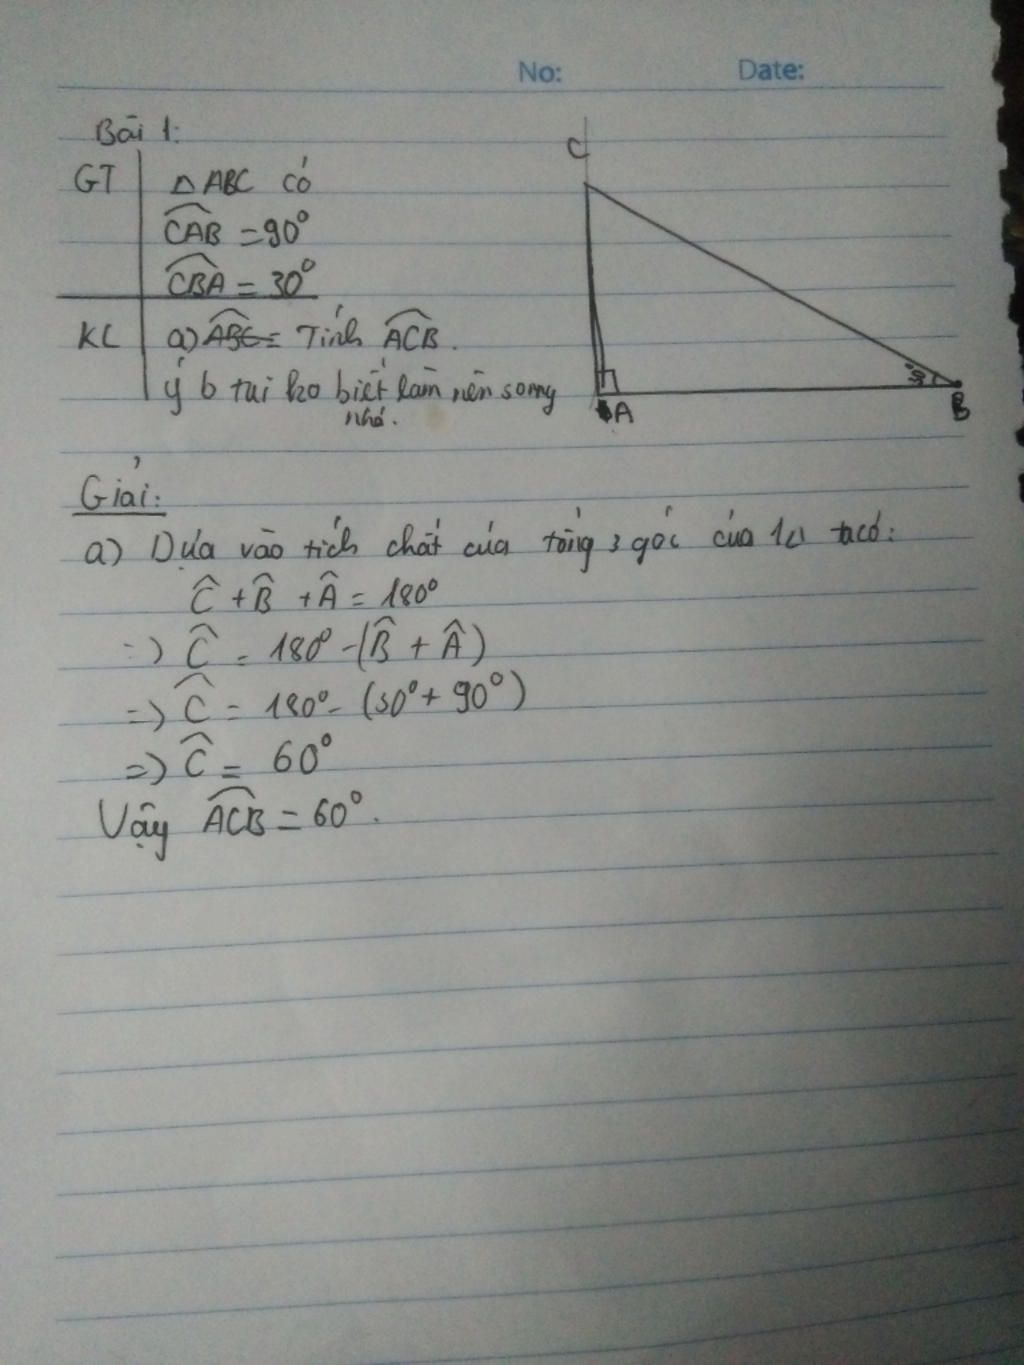 No: Date:
Bài 1:
GT △ABC có
CAB = 90°
CBA = 30°
KL a) ABC = Tính ACB.
ý b tui ko biết làm nên song
nhá.
C
30°
A
B
Giải:
a) Dựa vào tích chất của tổng 3 góc của 1△ ta có:
Ĉ + B̂ + Â = 180°
=> Ĉ = 180° - (B̂ + Â)
=> Ĉ = 180° - (30° + 90°)
=> Ĉ = 60°
Vậy ACB = 60°.